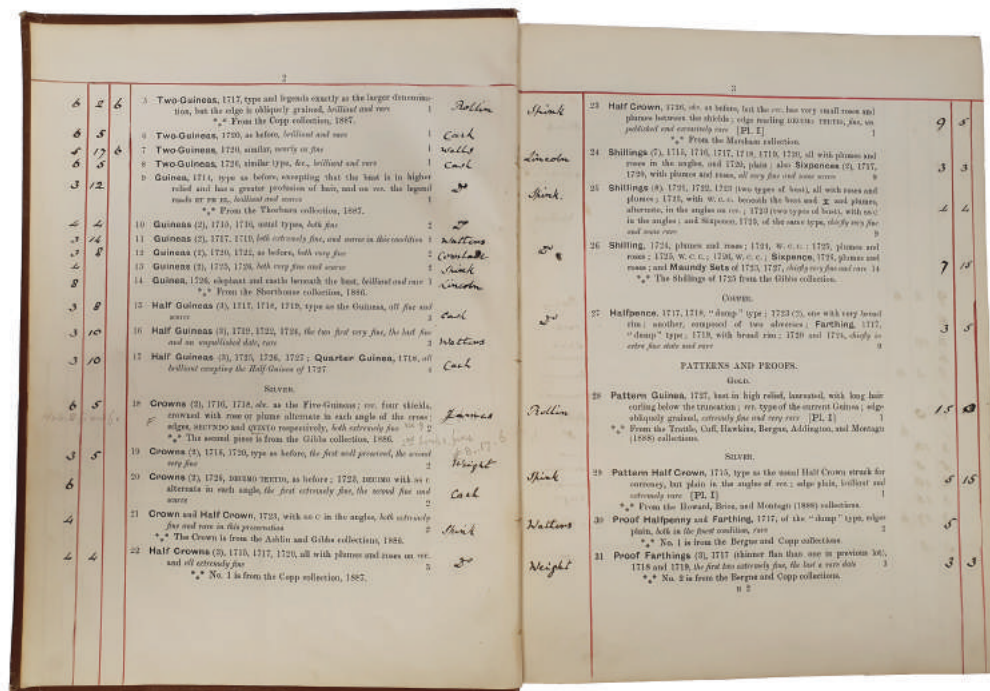 2
6 2 6 5 Two-Guineas, 1717, type and legends exactly as the larger denomina-
tion, but the edge is obliquely grained, brilliant and rare 1 Rollin
*** From the Copp collection, 1887.
6 5 6 Two-Guineas, 1720, as before, brilliant and rare 1 Cash
5 17 6 7 Two-Guineas, 1720, similar, nearly as fine 1
6 5 8 Two-Guineas, 1726, similar type, &c., brilliant and rare 1 Cash
3 12 9 Guinea, 1714, type as before, excepting that the bust is in higher
relief and has a greater profusion of hair, and on rev. the legend
reads ET PR EL, brilliant and scarce 1 Do
*** From the Thorburn collection, 1887.
4 4 10 Guineas (2), 1715, 1716, usual types, both fine 2 Do
3 14 11 Guineas (2), 1717, 1719, both extremely fine, and scarce in this condition Watters
3 8 12 Guineas (2), 1720, 1722, as before, both very fine 2
4 13 Guineas (2), 1725, 1726, both very fine and scarce 2 Spink
8 14 Guinea, 1726, elephant and castle beneath the bust, brilliant and rare 1 Lincoln
*** From the Shorthouse collection, 1886.
3 8 15 Half Guineas (3), 1717, 1718, 1719, type as the Guineas, all fine and
scarce 3 Cash
3 10 16 Half Guineas (3), 1722, 1724, the two first very fine, the last fine
and an unpublished date, rare 3 Watters
3 10 17 Half Guineas (3), 1725, 1726, 1727; Quarter Guinea, 1718, all
brilliant excepting the Half-Guinea of 1727 4 Cash
SILVER.
6 5 18 Crowns (2), 1716, 1718, obv. as the Five-Guineas; rev. four shields,
crowned with rose or plume alternate in each angle of the cross;
edges, SECUNDO and QUINTO respectively, both extremely fine 2
*** The second piece is from the Gibbs collection, 1886.
3 5 19 Crowns (2), 1718, 1720, type as before, the first well preserved, the second
very fine 2 Wright
6 20 Crowns (2), 1726, DECIMO TERTIO, as before; 1723, DECIMO with SS C
alternate in each angle, the first extremely fine, the second fine and
scarce 2 Cash
4 21 Crown and Half Crown, 1723, with SS C in the angles, both extremely
fine and rare in this preservation 2 Spink
*** The Crown is from the Ashlin and Gibbs collections, 1886.
4 4 22 Half Crowns (3), 1715, 1717, 1720, all with plumes and roses on rev.
and all extremely fine 3 Do
*** No. 1 is from the Copp collection, 1887.
3
Spink 23 Half Crown, 1726, obv. as before, but the rev. has very small roses and
plumes between the shields; edge reading DECIMO TERTIO, fine, un-
published and extremely rare [Pl. I] 1 9 5
*** From the Marsham collection.
Lincoln 24 Shillings (7), 1715, 1716, 1717, 1718, 1719, 1720, all with plumes and
roses in the angles, and 1720, plain; also Sixpences (2), 1717,
1720, with plumes and roses, all very fine and some scarce 9 3 3
Spink. 25 Shillings (8), 1721, 1722, 1723 (two types of bust), all with roses and
plumes; 1725, with W.C.C. beneath the bust and and plumes,
alternate, in the angles on rev.; 1723 (two types of bust), with SSC
in the angles; and Sixpence, 1723, of the same type, chiefly very fine
and some rare 9 4 4
Do 26 Shilling, 1724, plumes and roses; 1724, W.C.C.; 1725, plumes and
roses; 1725, W.C.C.; 1726, W.C.C.; Sixpence, 1726, plumes and
roses; and Maundy Sets of 1723, 1727, chiefly very fine and rare 14 7 15
*** The Shillings of 1725 from the Gibbs collection.
COPPER.
Do 27 Halfpence, 1717, 1718, "dump" type; 1723 (2), one with very broad
rim; another, composed of two obverses; Farthing, 1717,
"dump" type; 1719, with broad rim; 1720 and 1724, chiefly in
extra fine state and rare 9 3 5
PATTERNS AND PROOFS.
GOLD.
Rollin 28 Pattern Guinea, 1727, bust in high relief, laureated, with long hair
curling below the truncation; rev. type of the current Guinea; edge
obliquely grained, extremely fine and very rare [Pl. I] 1 15
*** From the Trattle, Cuff, Hawkins, Bergne, Addington, and Montagu
(1888) collections.
SILVER.
Spink 29 Pattern Half Crown, 1715, type as the usual Half Crown struck for
currency, but plain in the angles of rev.; edge plain, brilliant and
extremely rare [Pl. I] 1 5 15
*** From the Howard, Brice, and Montagu (1888) collections.
Watters 30 Proof Halfpenny and Farthing, 1717, of the "dump" type, edges
plain, both in the finest condition, rare 2 5
*** No. 1 is from the Bergne and Copp collections.
Weight 31 Proof Farthings (3), 1717 (thinner flan than one in previous lot),
1718 and 1719, the first two extremely fine, the last a rare date 3 3 3
*** No. 2 is from the Bergne and Copp collections.
B 2